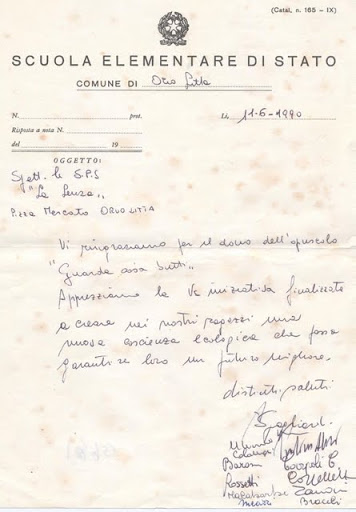 (Catal. n. 165 - IX)
SCUOLA ELEMENTARE DI STATO
COMUNE DI Orio Litta
N. prot.
Lì, 11-5-1990
Risposta a nota N.
del 19
OGGETTO:
Spett. le S.P.S
"La Lenza"
P.zza Mercato ORIO LITTA
Vi ringraziamo per il dono dell'opuscolo
"Guarda cosa butti".
Apprezziamo la Vs iniziativa finalizzata
a creare nei nostri ragazzi una
nuova coscienza ecologica che possa
garantire loro un futuro migliore.
distinti saluti
Rossetti
Zanoni